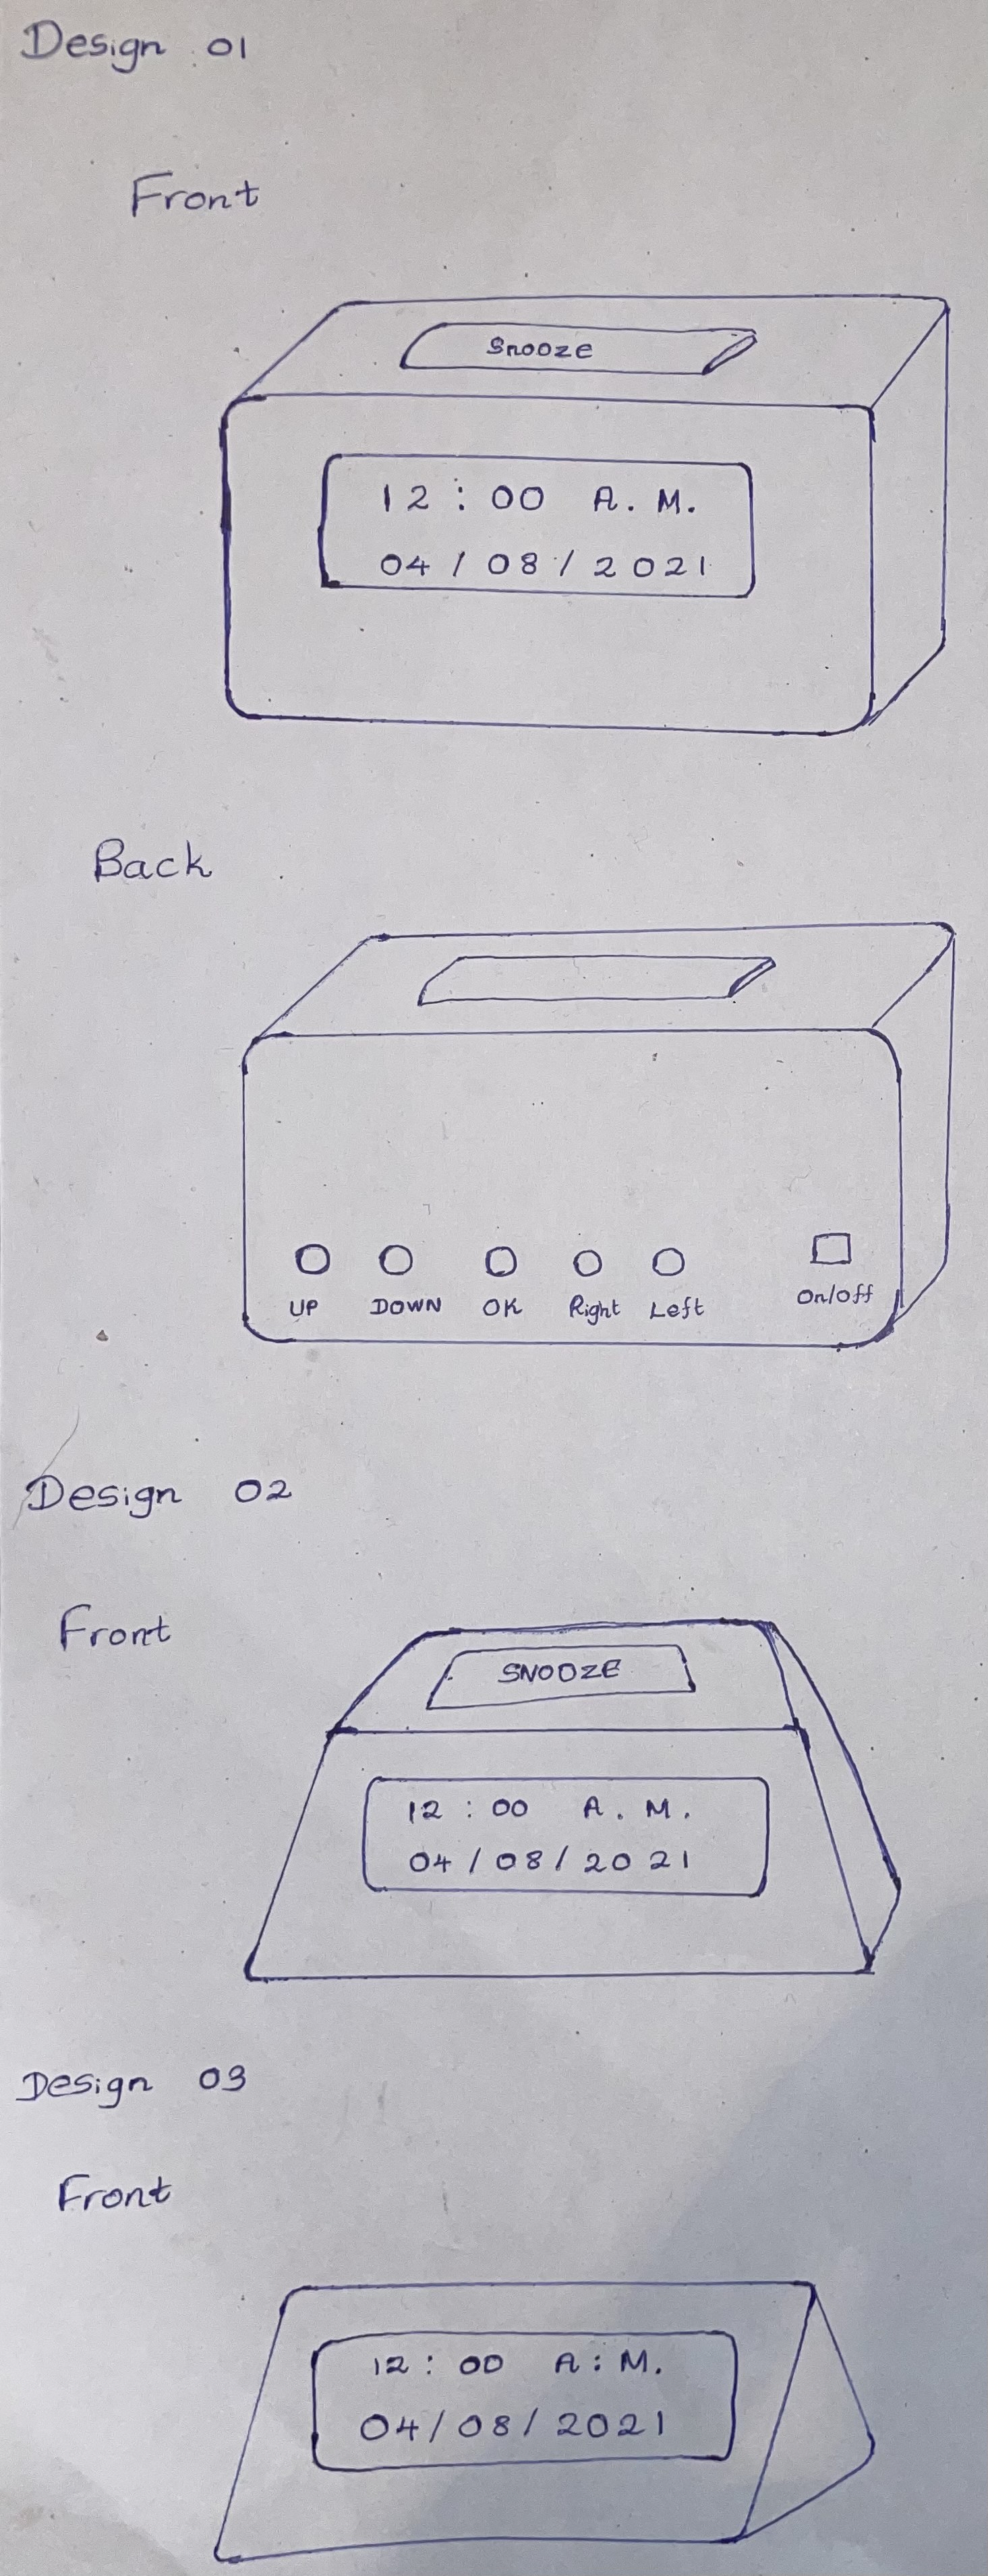 Design 01
Front
Snooze
12 : 00 A. M.
04 / 08 / 2021
Back
UP DOWN OK Right Left On/Off
Design 02
Front
SNOOZE
12 : 00 A. M.
04 / 08 / 2021
Design 03
Front
12 : 00 A : M.
04/08/2021